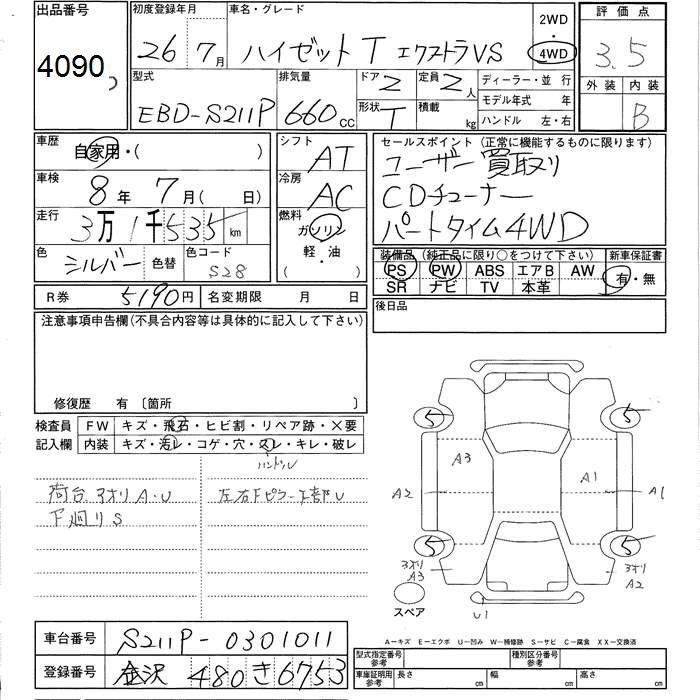 出品番号 初度登録年月 車名・グレード 2WD 評価点
4090 26年 7月 ハイゼット T エクストラVS 4WD 3.5
型式 排気量 ドア 2 定員 2人 ディーラー・並 行 外装 内装
EBD-S211P 660cc 形状 T 積載 kg モデル年式 年 B
ハンドル 左・右
車歴 自家用・( ) シフト AT セールスポイント (正常に機能するものに限ります)
車検 8年 7月( 日) 冷房 AC ユーザー買取り
走行 3万1千535km 燃料 ガソリン CDチューナー
色 シルバー 色替 色コード S28 軽・油 ( ) パートタイム4WD
装備品 (純正品に限り○をつけて下さい) 新車保証書
PS PW ABS エアB AW 有・無
SR ナビ TV 本革
R券 5190円 名変期限 月 日 後日品
注意事項申告欄(不具合内容等は具体的に記入して下さい)
修復歴 有 〔箇所 〕
検査員 FW キズ・飛石・ヒビ割・リペア跡・X要
記入欄 内装 キズ・汚レ・コゲ・穴・スレ・キレ・破レ
ハンドル
荷台 アオリ A・U 左右Fピラー下部U
下廻り S
5 5
A3 A1
A2 A1
5 5
アオリ A3 アオリ A2
スペア U1
A−キズ E−エクボ U−凹み W−補修跡 S−サビ C−腐食 XX−交換済
車台番号 S211P-0301011 型式指定番号 参考 種別区分番号 参考
登録番号 金沢 480 き 6753 車庫証明用 参考 長さ cm 幅 cm 高さ cm